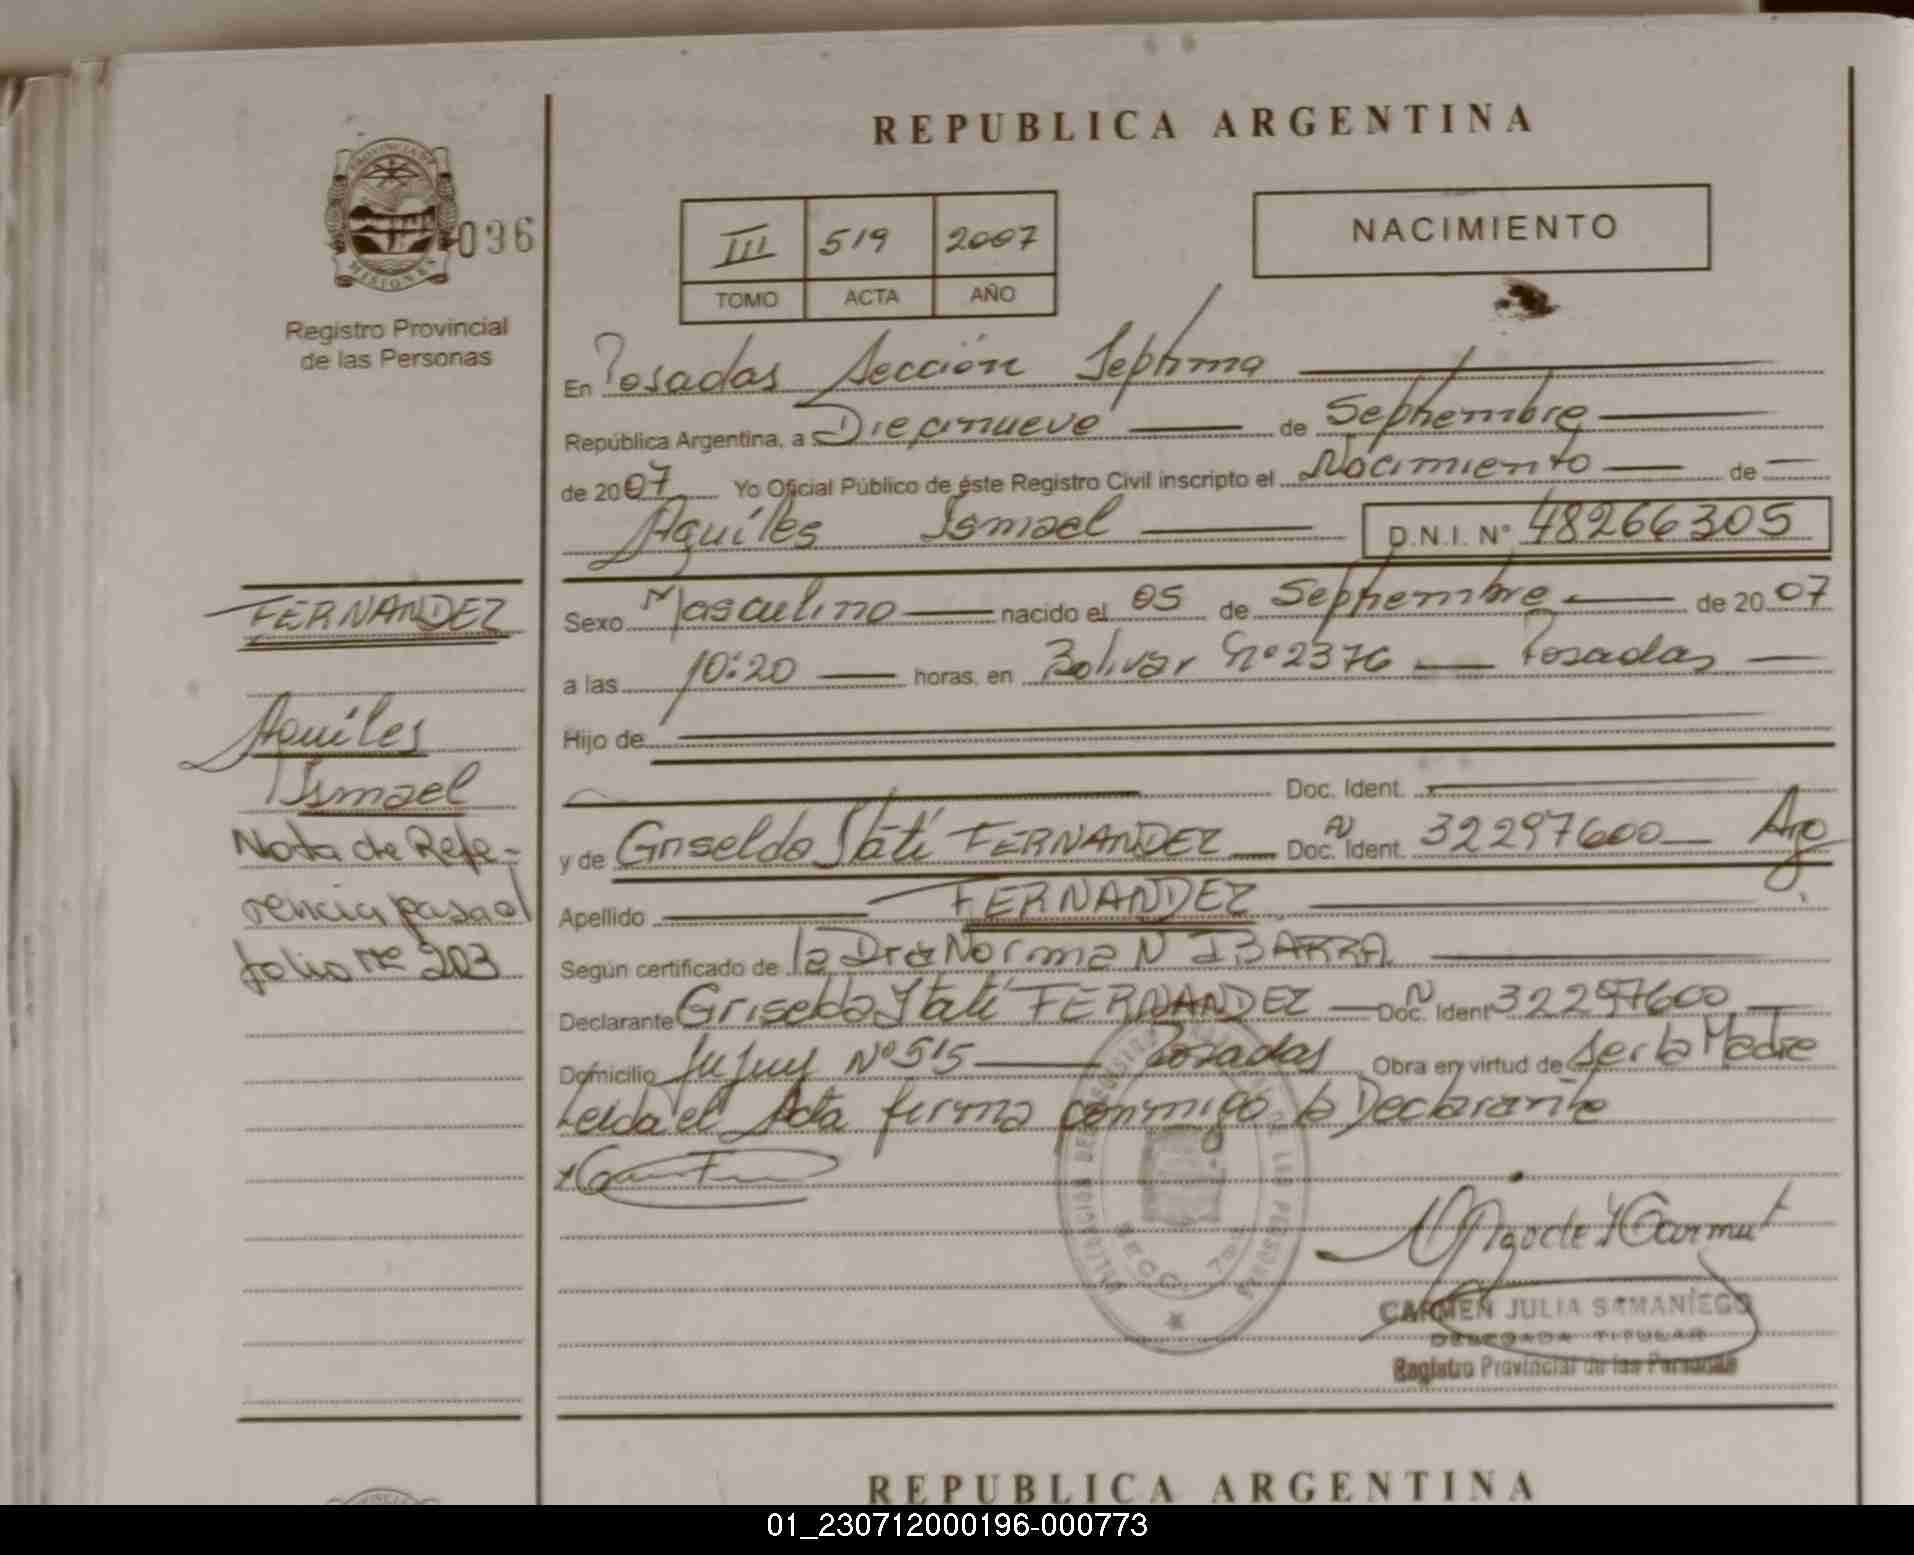 REPUBLICA ARGENTINA
PROVINCIA DE
MISIONES
036
Registro Provincial
de las Personas
III 519 2007
TOMO ACTA AÑO
NACIMIENTO
En Posadas Sección Septima
República Argentina, a Diecinueve de Septiembre
de 2007 Yo Oficial Público de éste Registro Civil inscripto el Nacimiento de
Aquiles Ismael D.N.I. N° 48266305
Sexo Masculino nacido el 05 de Septiembre de 2007
a las 10:20 horas, en Bolivar Nº 2376 Posadas
Hijo de
Doc. Ident.
y de Griselda Itatí FERNANDEZ Doc. Ident. 32297600 Arg
Apellido FERNANDEZ
Según certificado de la Dra Norma N IBARRA
Declarante Griselda Itatí FERNANDEZ Doc. Ident 32297600
Domicilio Jujuy Nº 515 Posadas Obra en virtud de ser la Madre
Leida el Acta firma conmigo la Declarante
FERNANDEZ
Aquiles
Ismael
Nota de Refe-
rencia pasa al
folio Nº 203
SECC. 7ma
CARMEN JULIA SAMANIEGO
DELEGADA TITULAR
Registro Provincial de las Personas
REPUBLICA ARGENTINA
01_230712000196-000773